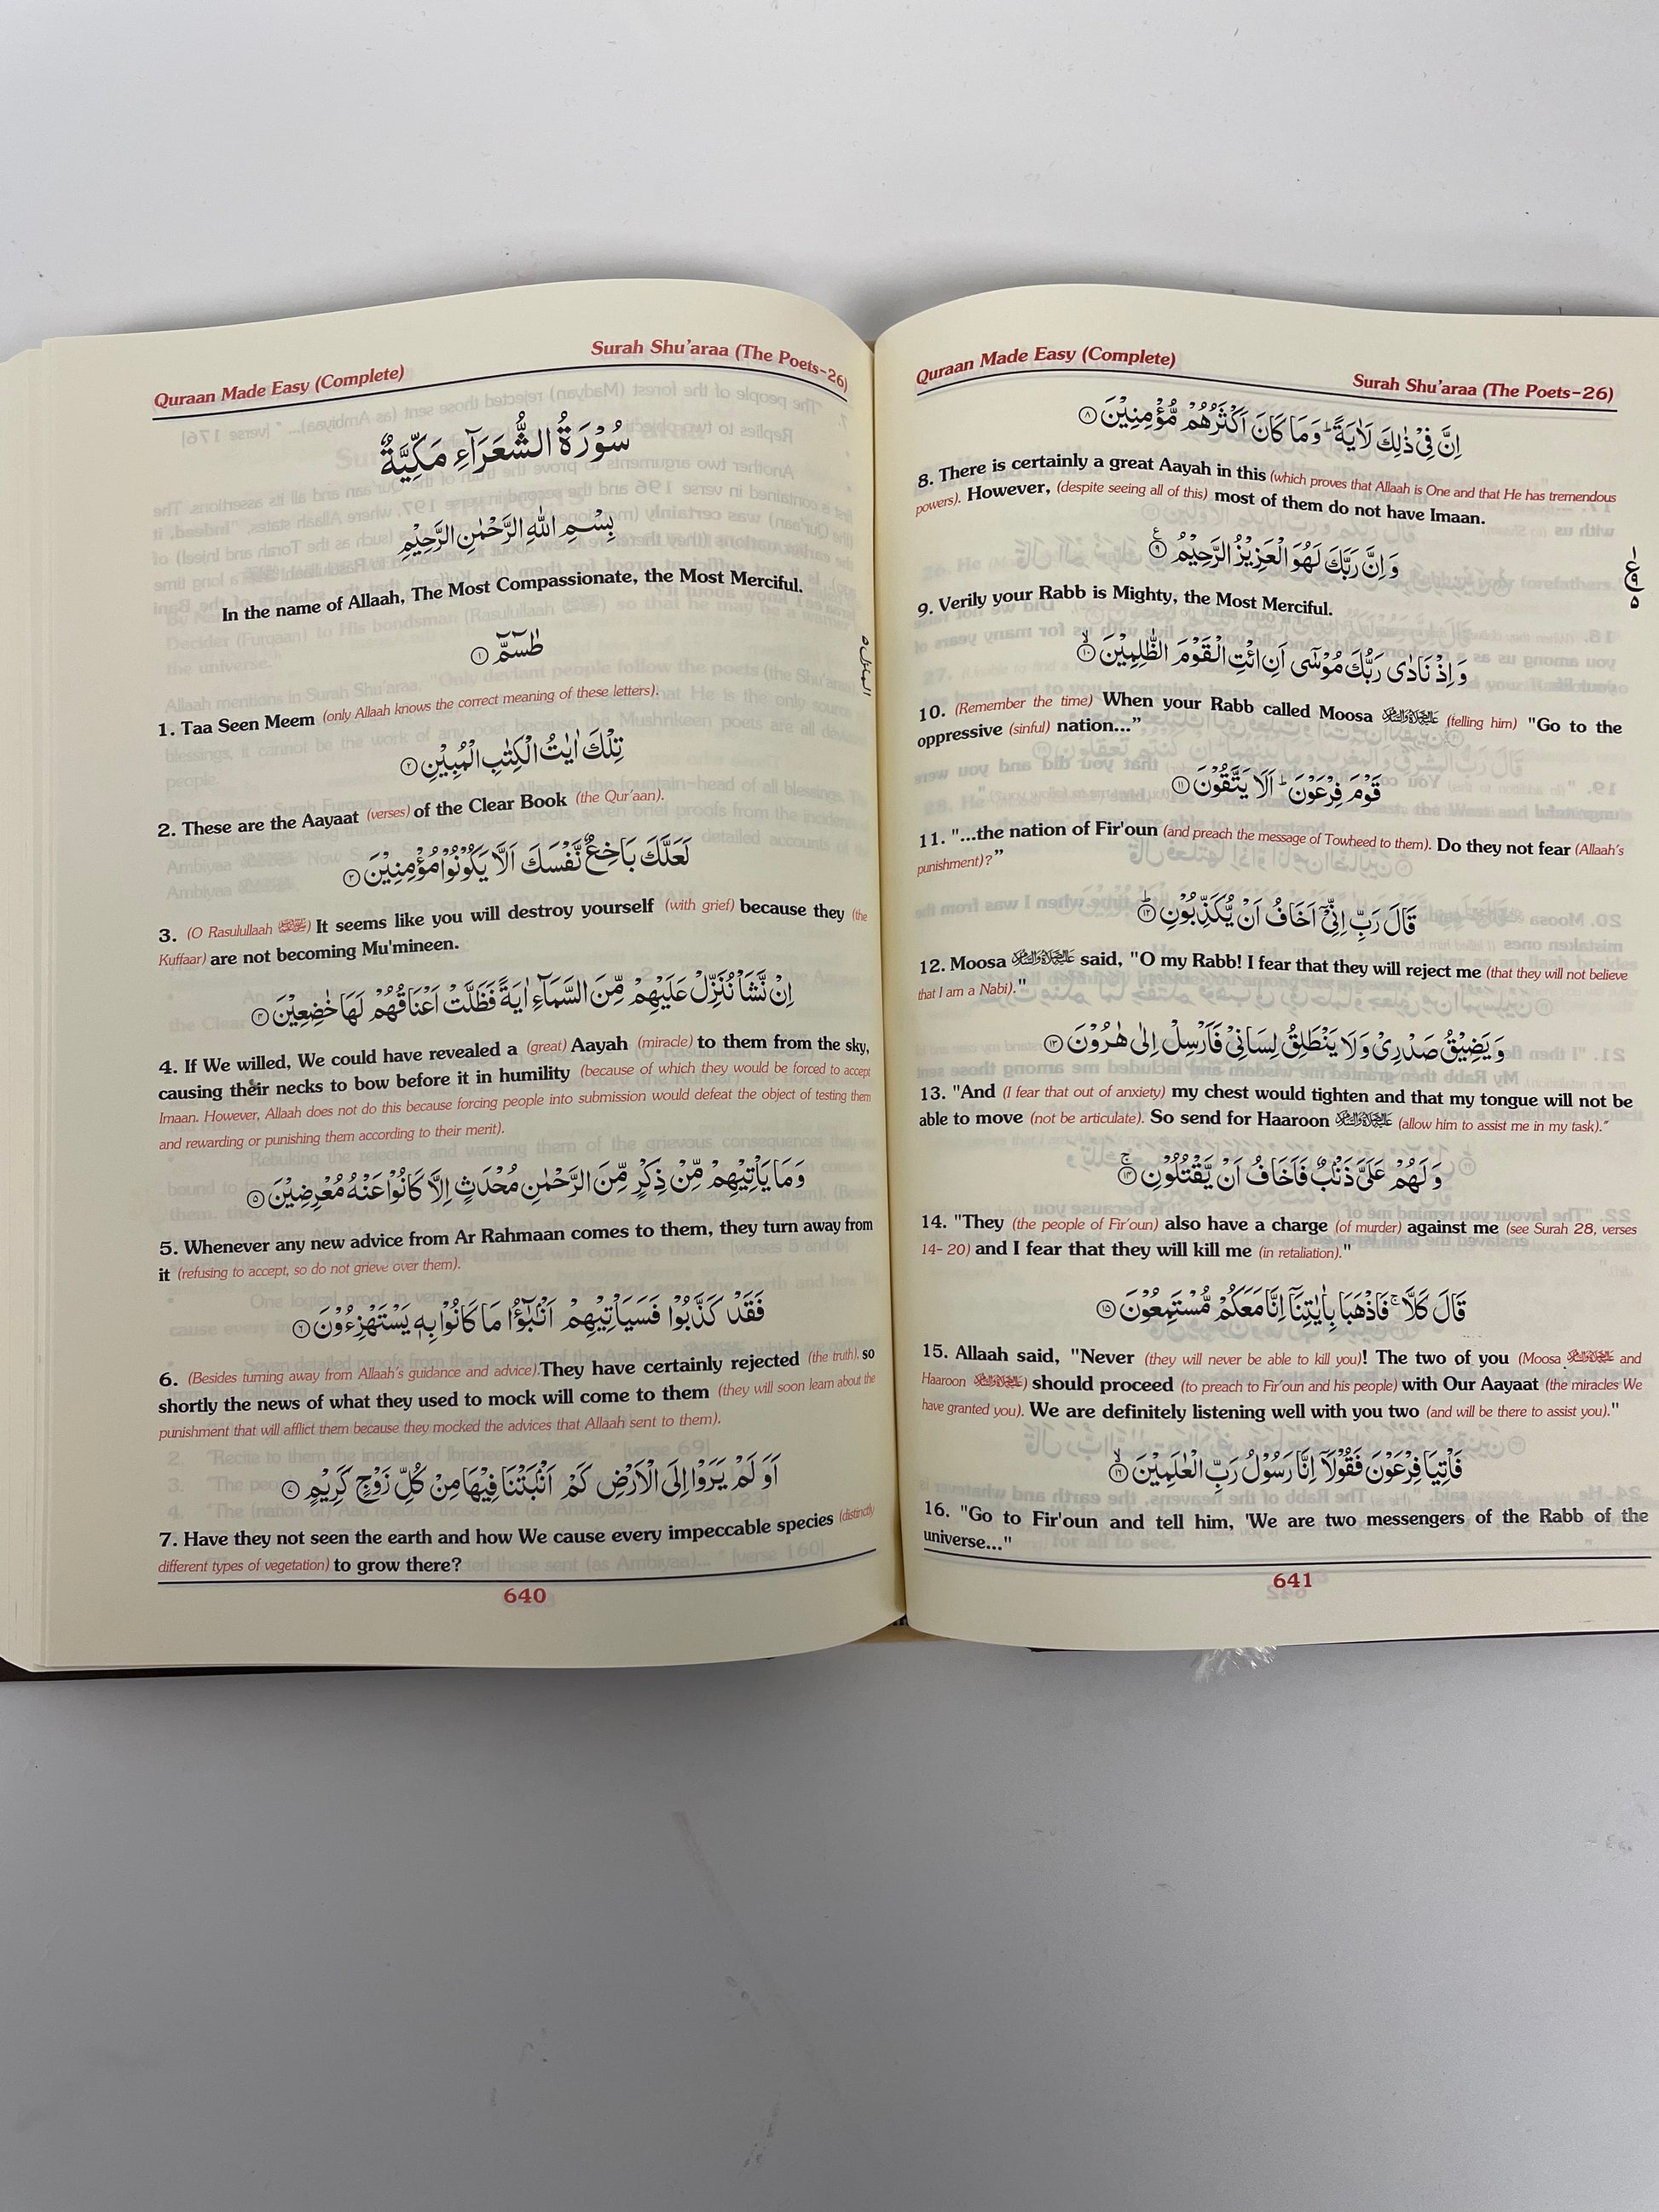 Quraan Made Easy (Complete)
Surah Shu'araa (The Poets-26)
سُوْرَةُ الشُّعَرَآءِ مَكِّيَّةٌ
بِسْمِ اللهِ الرَّحْمٰنِ الرَّحِيْمِ
In the name of Allaah, The Most Compassionate, the Most Merciful.
طٰسٓمّٓ ۝١
1. Taa Seen Meem (only Allaah knows the correct meaning of these letters).
تِلْكَ اٰيٰتُ الْكِتٰبِ الْمُبِيْنِ ۝٢
2. These are the Aayaat (verses) of the Clear Book (the Qur'aan).
لَعَلَّكَ بَاخِعٌ نَّفْسَكَ اَلَّا يَكُوْنُوْا مُؤْمِنِيْنَ ۝٣
3. (O Rasulullaah ﷺ) It seems like you will destroy yourself (with grief) because they (the
Kuffaar) are not becoming Mu'mineen.
اِنْ نَّشَاْ نُنَزِّلْ عَلَيْهِمْ مِّنَ السَّمَآءِ اٰيَةً فَظَلَّتْ اَعْنَاقُهُمْ لَهَا خٰضِعِيْنَ ۝٤
4. If We willed, We could have revealed a (great) Aayah (miracle) to them from the sky,
causing their necks to bow before it in humility (because of which they would be forced to accept
Imaan. However, Allaah does not do this because forcing people into submission would defeat the object of testing them
and rewarding or punishing them according to their merit).
وَمَا يَاْتِيْهِمْ مِّنْ ذِكْرٍ مِّنَ الرَّحْمٰنِ مُحْدَثٍ اِلَّا كَانُوْا عَنْهُ مُعْرِضِيْنَ ۝٥
5. Whenever any new advice from Ar Rahmaan comes to them, they turn away from
it (refusing to accept, so do not grieve over them).
فَقَدْ كَذَّبُوْا فَسَيَاْتِيْهِمْ اَنْۢبٰٓؤُا مَا كَانُوْا بِهٖ يَسْتَهْزِءُوْنَ ۝٦
6. (Besides turning away from Allaah's guidance and advice).They have certainly rejected (the truth). so
shortly the news of what they used to mock will come to them (they will soon learn about the
punishment that will afflict them because they mocked the advices that Allaah sent to them).
اَوَ لَمْ يَرَوْا اِلَى الْاَرْضِ كَمْ اَنْۢبَتْنَا فِيْهَا مِنْ كُلِّ زَوْجٍ كَرِيْمٍ ۝٧
7. Have they not seen the earth and how We cause every impeccable species (distinctly
different types of vegetation) to grow there?
640
Quraan Made Easy (Complete)
Surah Shu'araa (The Poets-26)
اِنَّ فِيْ ذٰلِكَ لَاٰيَةً ؕ وَمَا كَانَ اَكْثَرُهُمْ مُّؤْمِنِيْنَ ۝٨
8. There is certainly a great Aayah in this (which proves that Allaah is One and that He has tremendous
powers). However, (despite seeing all of this) most of them do not have Imaan.
وَاِنَّ رَبَّكَ لَهُوَ الْعَزِيْزُ الرَّحِيْمُ ۝٩
9. Verily your Rabb is Mighty, the Most Merciful.
وَاِذْ نَادٰى رَبُّكَ مُوْسٰٓى اَنِ ائْتِ الْقَوْمَ الظّٰلِمِيْنَ ۝١٠
10. (Remember the time) When your Rabb called Moosa عليه الصلاة والسلام (telling him) "Go to the
oppressive (sinful) nation..."
قَوْمَ فِرْعَوْنَ ؕ اَلَا يَتَّقُوْنَ ۝١١
11. "...the nation of Fir'oun (and preach the message of Towheed to them). Do they not fear (Allaah's
punishment)?"
قَالَ رَبِّ اِنِّيْٓ اَخَافُ اَنْ يُّكَذِّبُوْنِ ۝١٢
12. Moosa عليه الصلاة والسلام said, "O my Rabb! I fear that they will reject me (that they will not believe
that I am a Nabi)."
وَيَضِيْقُ صَدْرِيْ وَلَا يَنْطَلِقُ لِسَانِيْ فَاَرْسِلْ اِلٰى هٰرُوْنَ ۝١٣
13. "And (I fear that out of anxiety) my chest would tighten and that my tongue will not be
able to move (not be articulate). So send for Haaroon عليه الصلاة والسلام (allow him to assist me in my task)."
وَلَهُمْ عَلَيَّ ذَنْۢبٌ فَاَخَافُ اَنْ يَّقْتُلُوْنِ ۝١٤
14. "They (the people of Fir'oun) also have a charge (of murder) against me (see Surah 28, verses
14- 20) and I fear that they will kill me (in retaliation)."
قَالَ كَلَّا ۚ فَاذْهَبَا بِاٰيٰتِنَآ اِنَّا مَعَكُمْ مُّسْتَمِعُوْنَ ۝١٥
15. Allaah said, "Never (they will never be able to kill you)! The two of you (Moosa عليه الصلاة والسلام and
Haaroon عليه الصلاة والسلام) should proceed (to preach to Fir'oun and his people) with Our Aayaat (the miracles We
have granted you). We are definitely listening well with you two (and will be there to assist you)."
فَاْتِيَا فِرْعَوْنَ فَقُوْلَآ اِنَّا رَسُوْلُ رَبِّ الْعٰلَمِيْنَ ۝١٦
16. "Go to Fir'oun and tell him, 'We are two messengers of the Rabb of the
universe..."
641